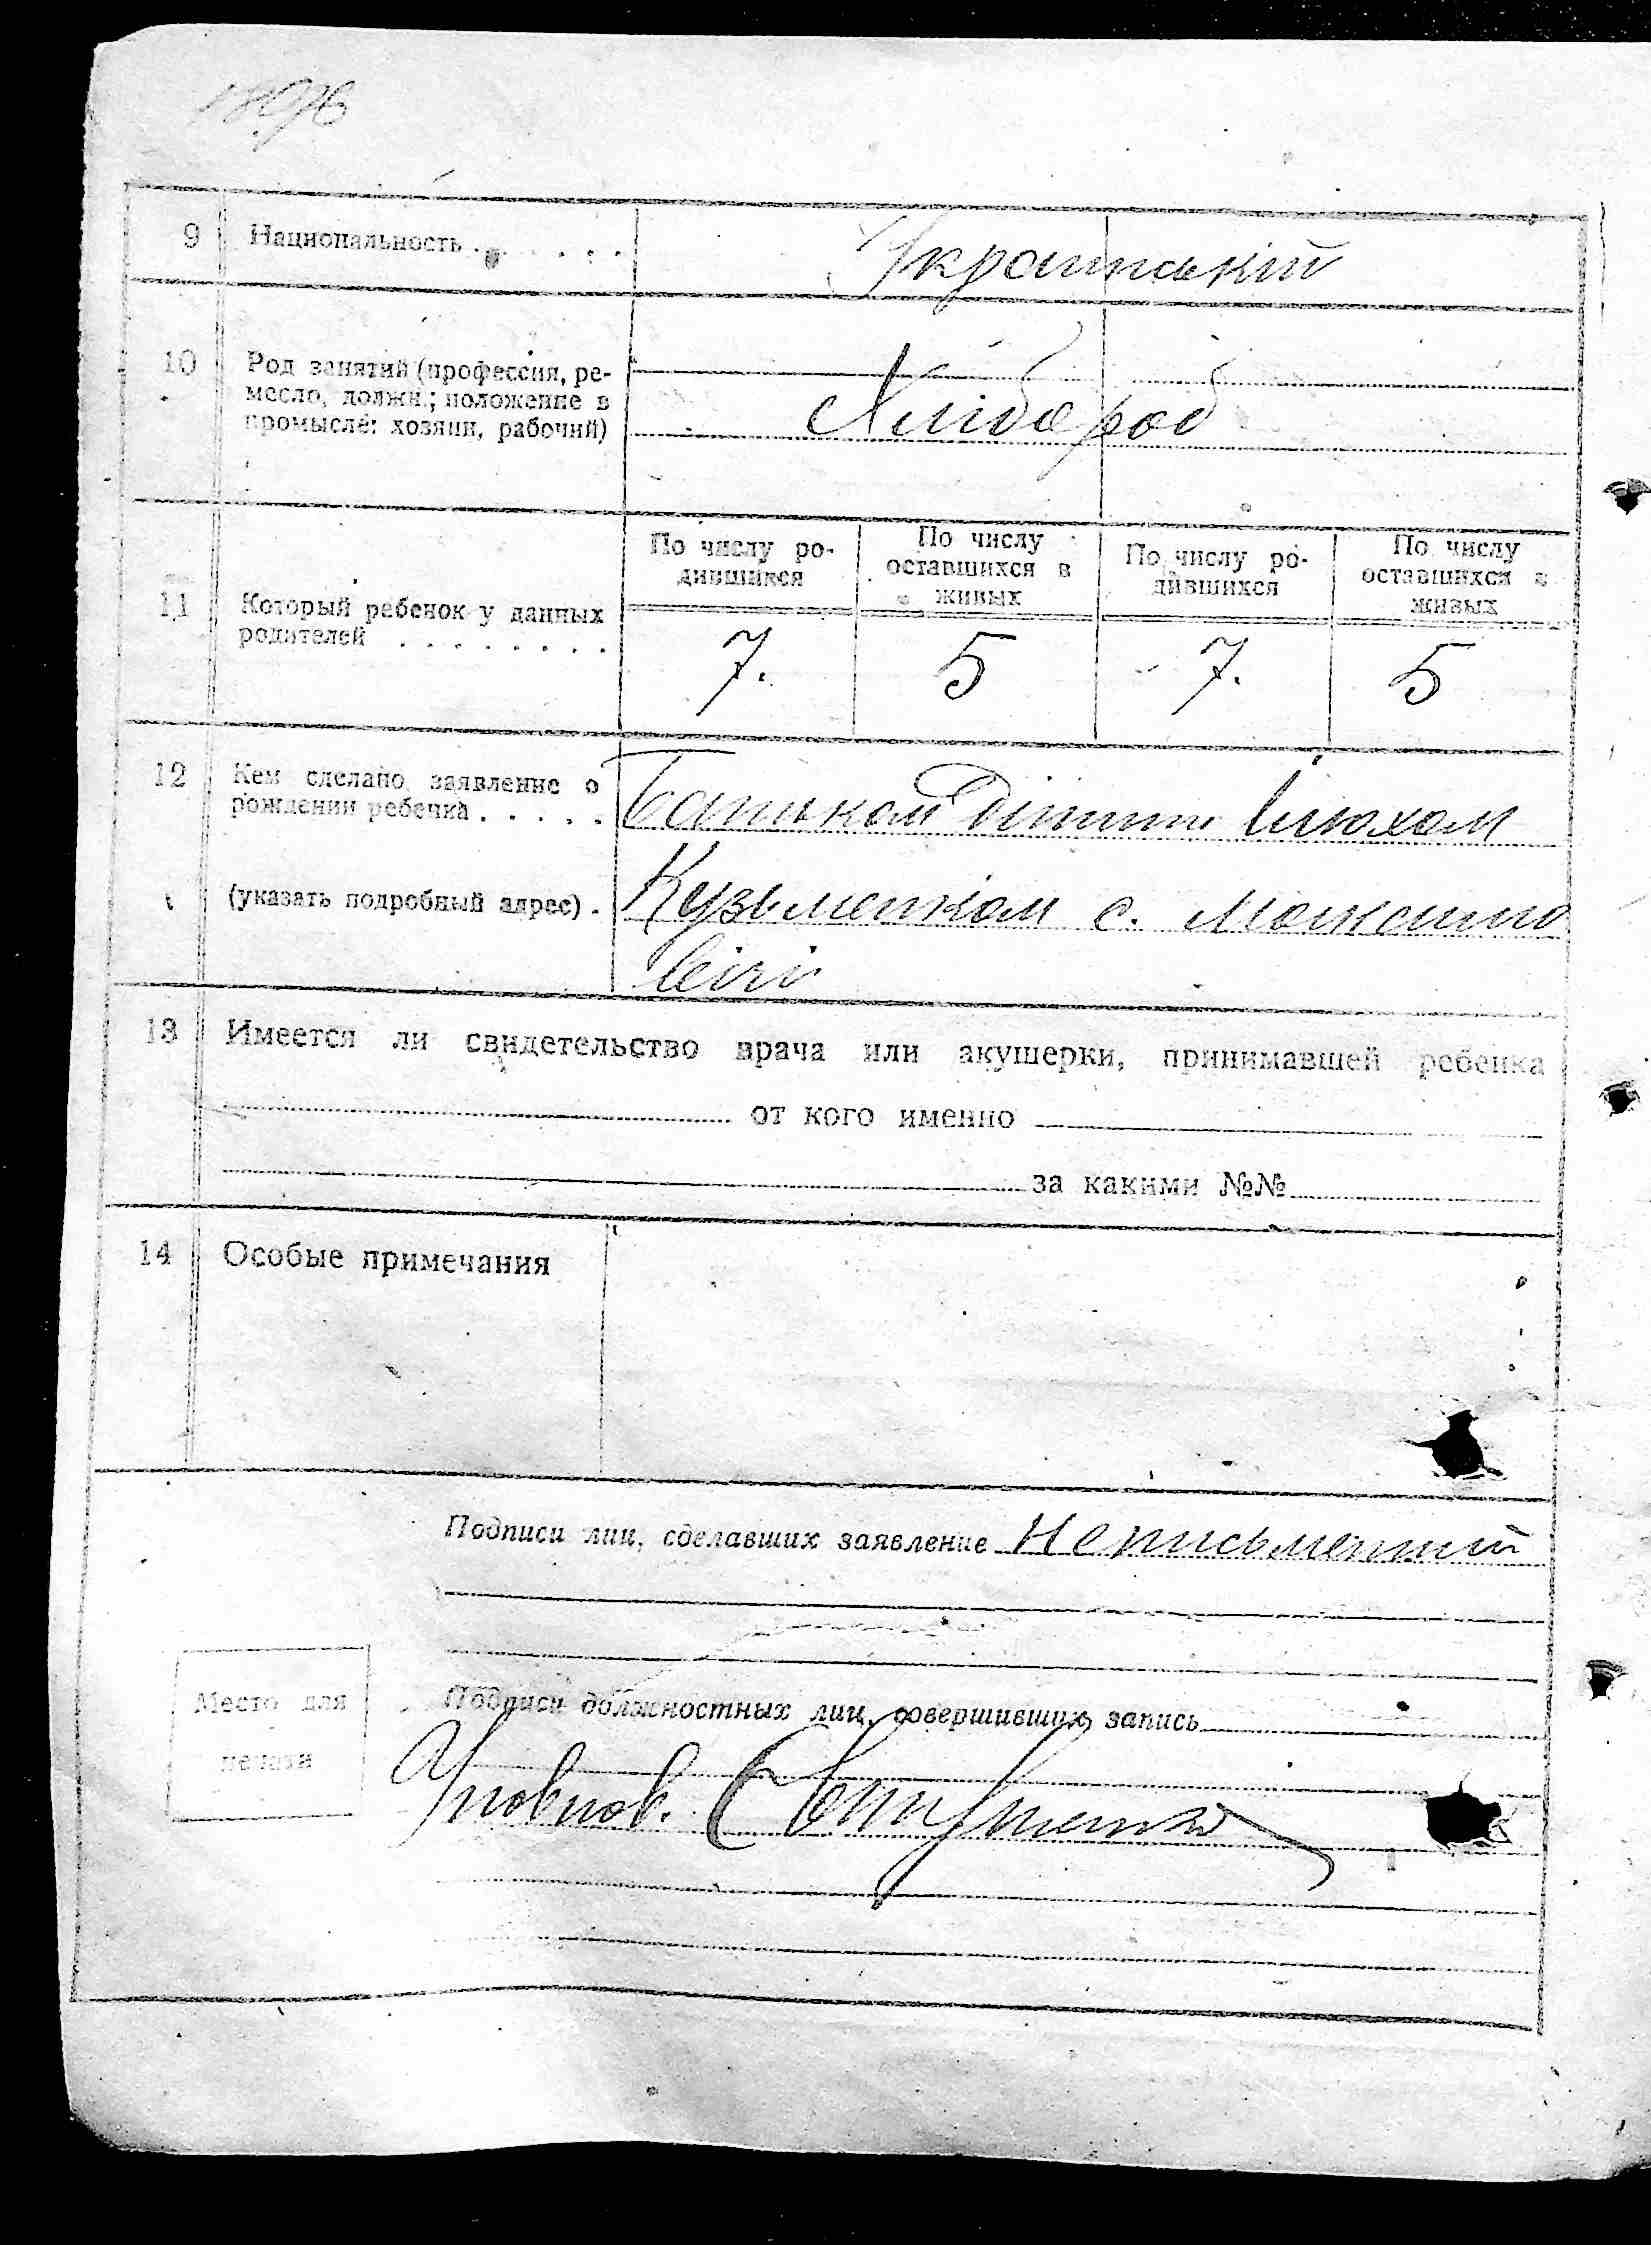 1896
9 Национальность . . . . . . Український
10 Род занятий (профессия, ре-
месло, должн.; положение в
промысле: хозяин, рабочий)
Хлібороб
По числу ро-
дившихся
По числу
оставшихся в
живых
По числу ро-
дившихся
По числу
оставшихся в
живых
11 Который ребенок у данных
родителей . . . . . . . .
7. 5 7. 5
12 Кем сделано заявление о
рождении ребенка . . . . .
Батьком
(указать подробный адрес) .
Кузьменком с.
13 Имеется ли свидетельство врача или акушерки, принимавшей ребенка
от кого именно
за какими №№
14 Особые примечания
Подписи лиц, сделавших заявление Неписьменний
Место для
печати
Подписи должностных лиц, совершивших запись
Уповнов.